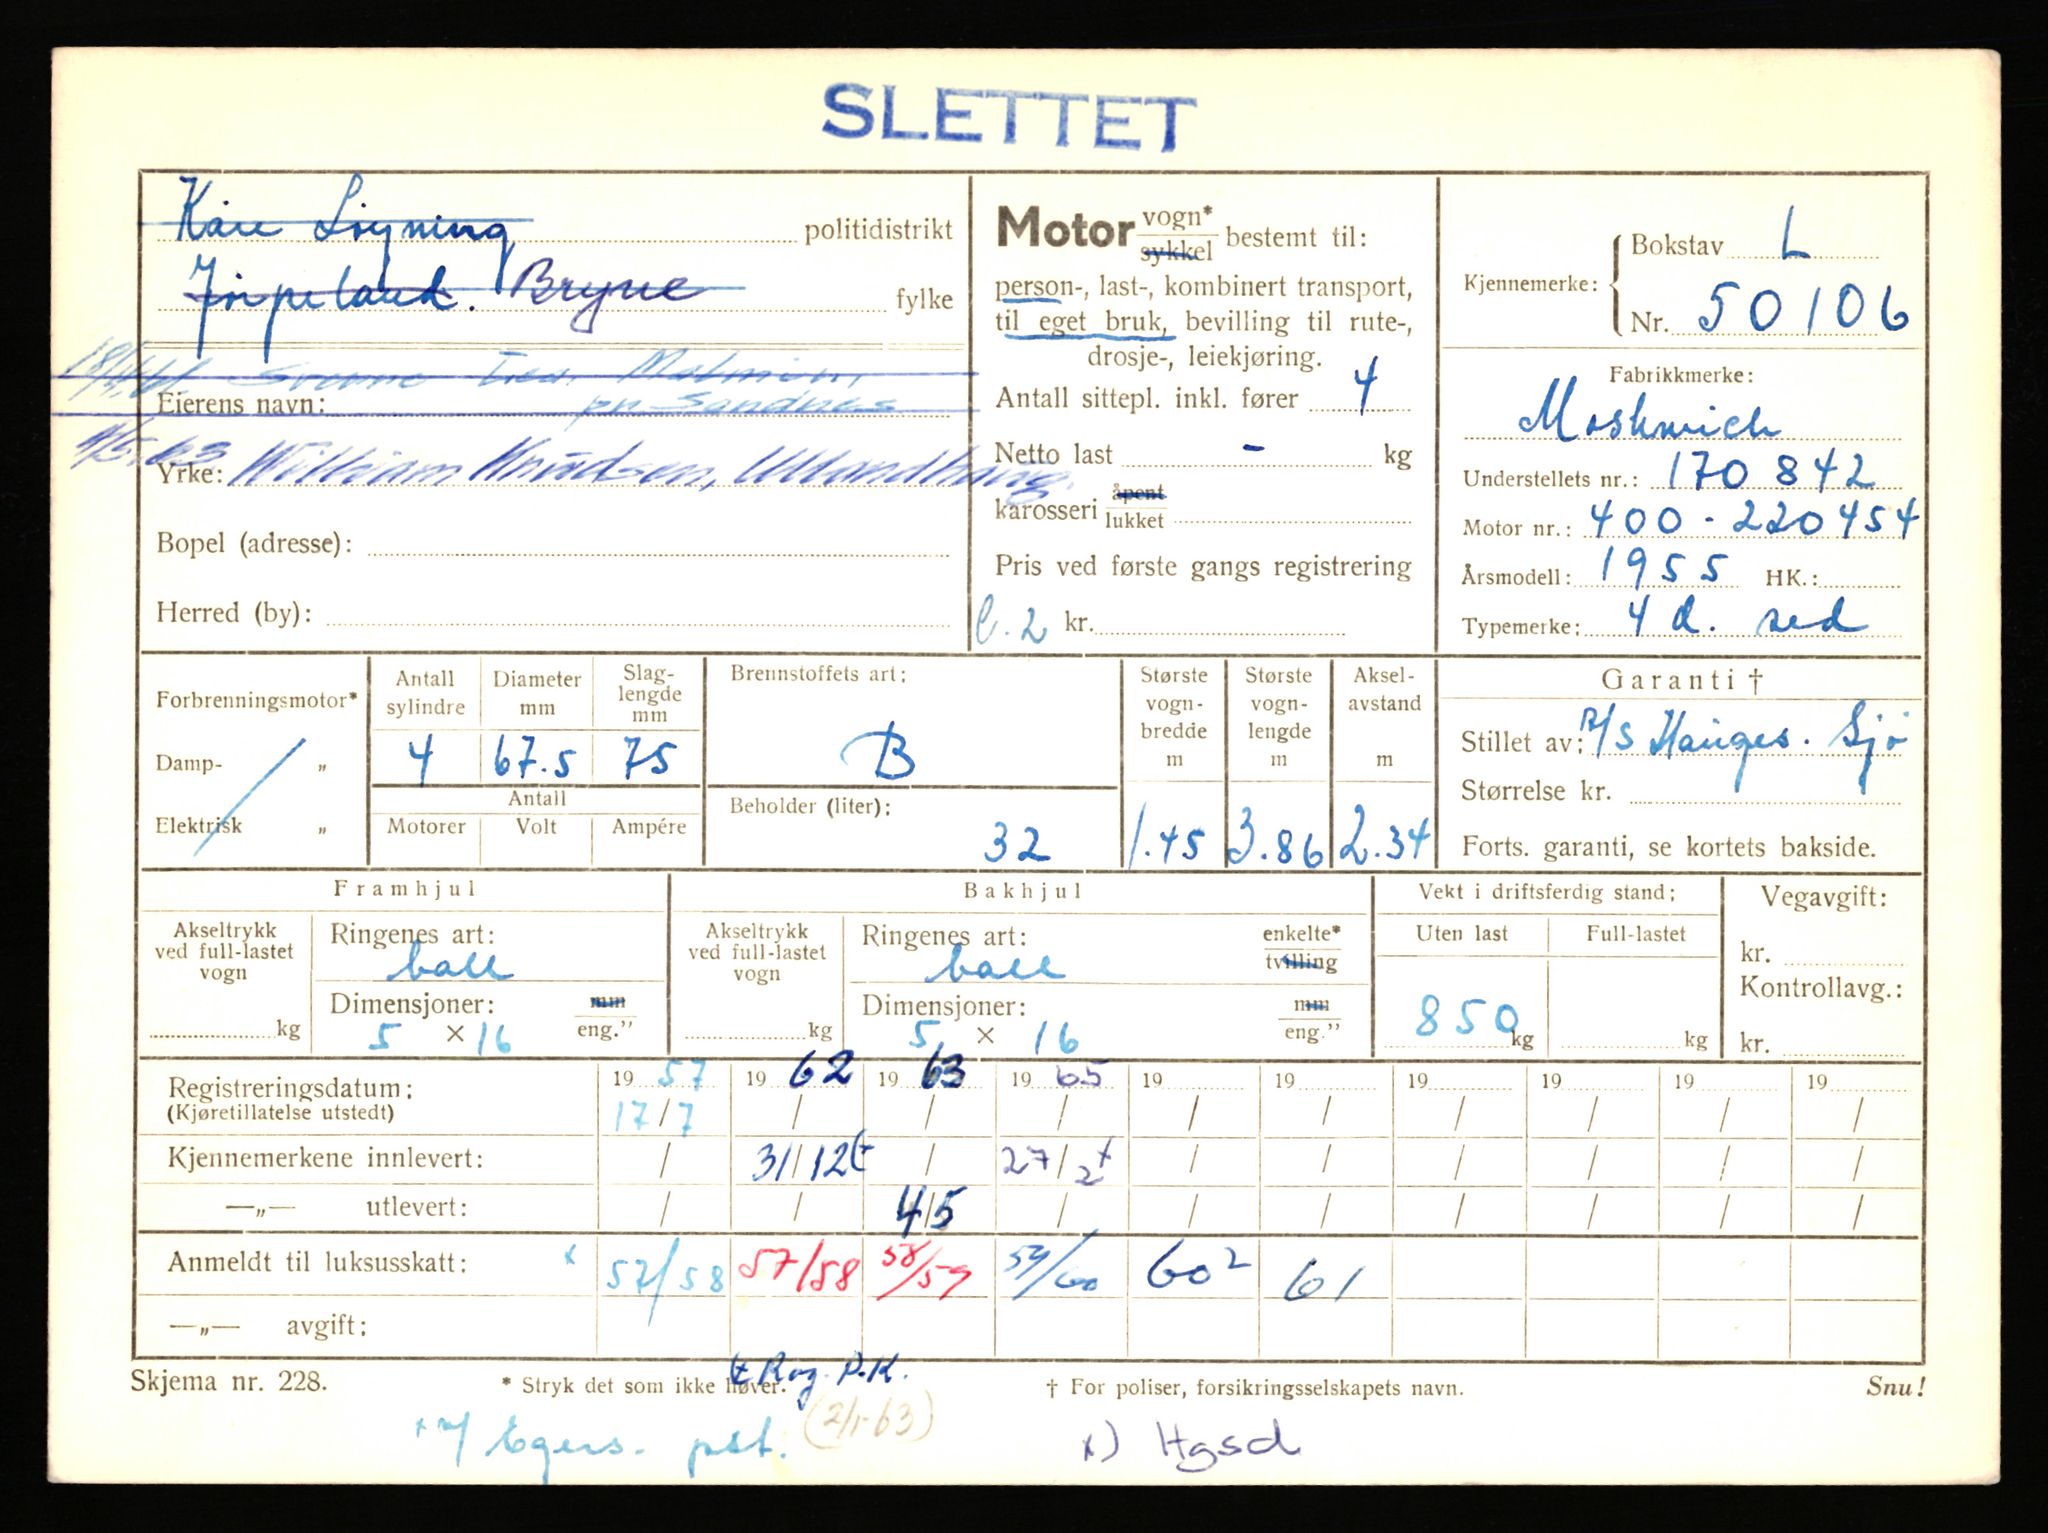 SLETTET
Kåre Løyning politidistrikt
Jørpeland. Bryne fylke
18/4.61 Sverre Malmin,
Eierens navn: pr Sandnes
4/5.63
Yrke: William Knudsen, Ullandhaug.
Bopel (adresse):
Herred (by):
Motor vogn* sykkel bestemt til:
person-, last-, kombinert transport,
til eget bruk, bevilling til rute-,
drosje-, leiekjøring.
Antall sittepl. inkl. fører 4
Netto last - kg
karosseri åpent lukket
Pris ved første gangs registrering
l.2 kr.
Kjennemerke: Bokstav L
Nr. 50106
Fabrikkmerke:
Moskwich
Understellets nr.: 170842
Motor nr.: 400-220454
Årsmodell: 1955 HK.:
Typemerke: 4 d. sed
Forbrenningsmotor*
Damp- „
Elektrisk „
Antall sylindre Diameter mm Slag-lengde mm
4 67.5 75
Antall
Motorer Volt Ampére
Brennstoffets art:
B
Beholder (liter):
32
Største vogn-bredde m
1.45
Største vogn-lengde m
3.86
Aksel-avstand m
2.34
Garanti †
Stillet av: A/S Hauges. Sjø
Størrelse kr.
Forts. garanti, se kortets bakside.
Framhjul
Akseltrykk
ved full-lastet
vogn
kg
Ringenes art:
ball
Dimensjoner: mm
5 × 16 eng.”
Bakhjul
Akseltrykk
ved full-lastet
vogn
kg
Ringenes art: enkelte*
ball tvilling
Dimensjoner: mm
5 × 16 eng.”
Vekt i driftsferdig stand:
Uten last Full-lastet
850 kg kg
Vegavgift:
kr.
Kontrollavg.:
kr.
Registreringsdatum: 19 57 19 62 19 63 19 65 19 19 19 19 19 19
(Kjøretillatelse utstedt) 17/7 / / / / / / / / /
Kjennemerkene innlevert: / 31/12 ( / 27/2 x / / / / / /
—„— utlevert: / / 4/5 / / / / / / /
Anmeldt til luksusskatt: x 57/58 57/58 58/59 59/60 60² 61
—„— avgift:
Skjema nr. 228. * Stryk det som ikke høver. † For poliser, forsikringsselskapets navn. Snu!
Rog. P.K.
Egers. pst. (2/1-63) x) Hgsd